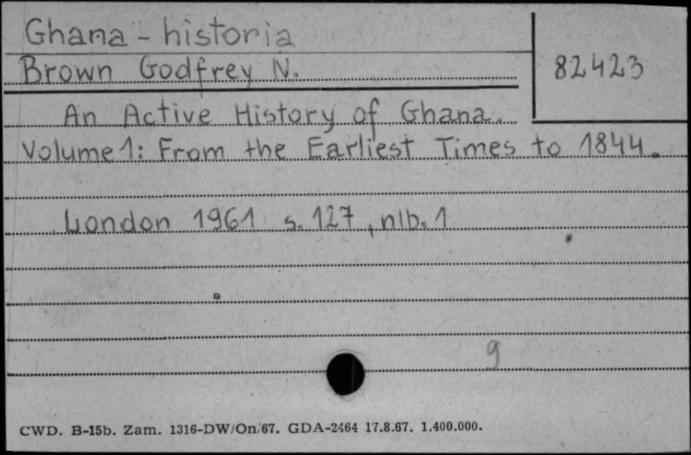 Ghana - historia
Brown Godfrey N.
82423
An Active History of Ghana.
Volume 1: From the Earliest Times to 1844.
London 1961 s. 127, nlb. 1
9
CWD. B-15b. Zam. 1316-DW/On/67. GDA-2464 17.8.67. 1.400.000.